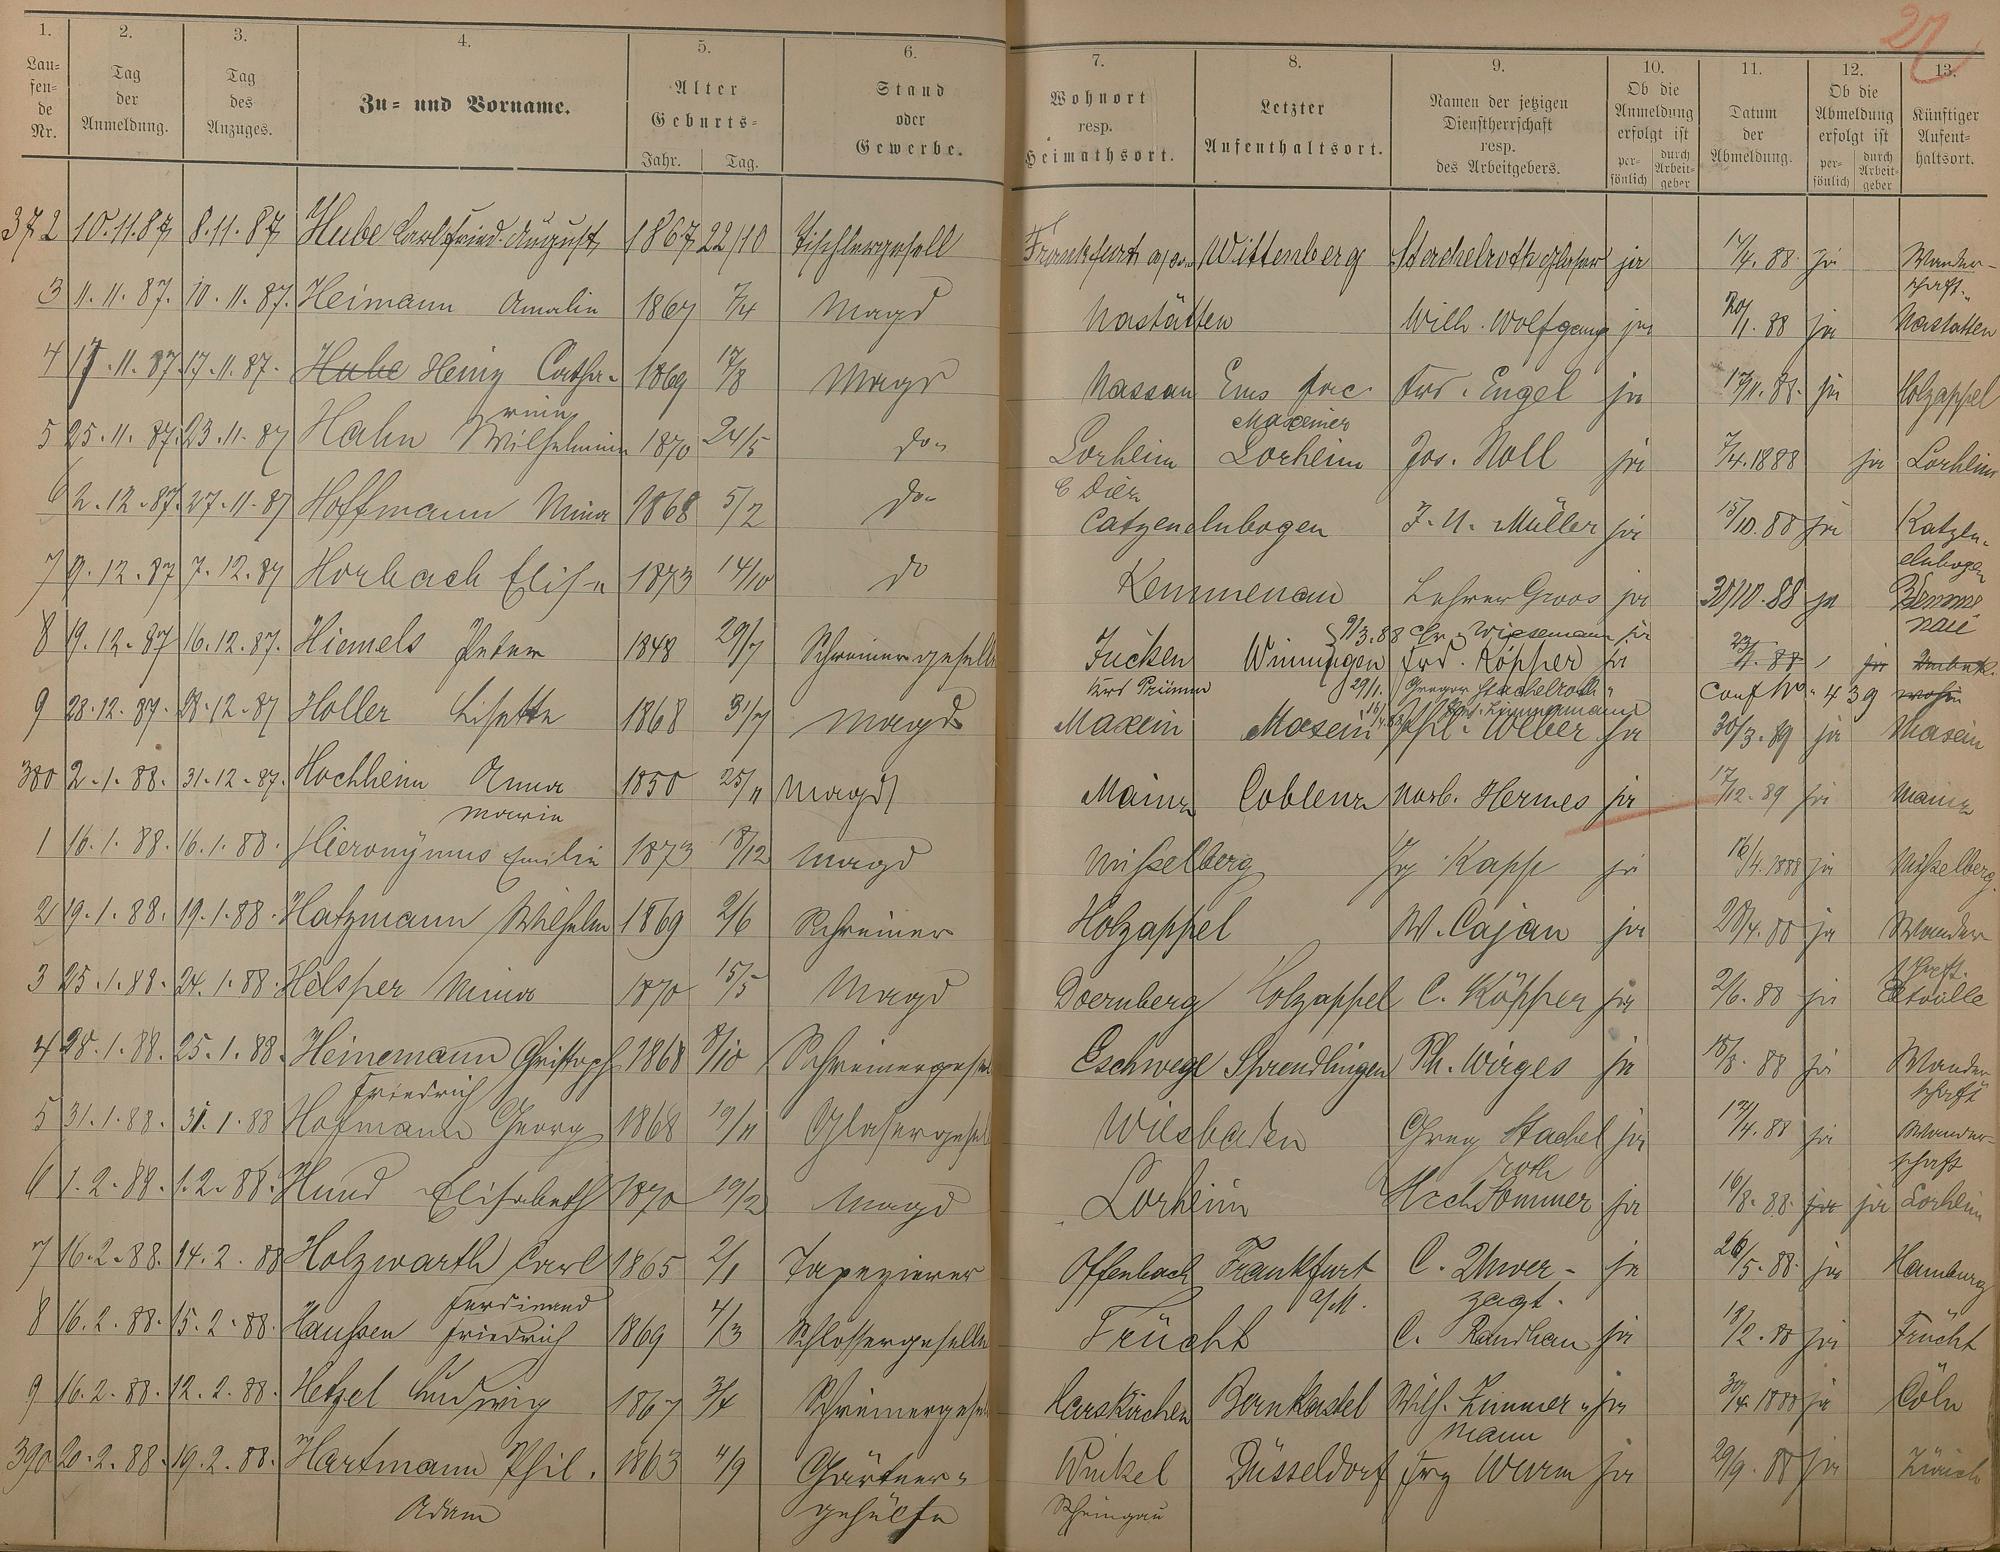 27
1. 2. 3. 4. 5. 6. 7. 8. 9. 10. 11. 12. 13.
Laufende Nr. Tag der Anmeldung. Tag des Anzuges. Zu- und Vorname. Alter Geburts- Jahr. Tag. Stand oder Gewerbe. Wohnort resp. Heimathsort. Letzter Aufenthaltsort. Namen der jetzigen Dienstherrschaft resp. des Arbeitgebers. Ob die Anmeldung erfolgt ist persönlich durch Arbeitgeber Datum der Abmeldung. Ob die Abmeldung erfolgt ist persönlich durch Arbeitgeber Künftiger Aufenthaltsort.
372 10.11.87 8.11.87 Hube Carl Fried. August 1867 22/10 Tischlergesell Frankfurt a/ Wittenberg ja 17/4. 88 ja Wander-
schaft
3 11.11.87. 10.11.87. Heimann Amalie 1867 7/4 Magd Nastätten Wilh. Wolfgang ja 20/1. 88 ja Nastätten
4 17.11.87 17.11.87. Hube Heinz Catha- 1869 17/8 Magd Nassau Ems Jac Frd. Engel ja 17/11. 88. ja Holzappel
rine Maxeiner
5 25.11.87. 23.11.87 Hahn Wilhelmine 1870 24/5 do. Lorheim Lorheim Jos. Noll ja 7/4. 1888 ja Lorheim
b Diez
6 2.12.87. 27.11.87 Hoffmann Mina 1868 5/2 do Catzenelnbogen J. N. Müller ja 15/10. 88 ja Katzen-
elnbogen
7 9.12.87 7.12.87 Horbach Elise 1873 14/10 do Kemmenau Lehrer Groos ja 30/10. 88 ja Kemme
nau
9/3.88 Chr. Wiesemann ja
8 19.12.87 16.12.87. Hiemels Peter 1848 29/7 Schreinergeselle Jucken Winningen Frd. Köpper ja 23/1. 88 ja
Krs Prümm 29/1. Gregor Stachelroth conf No. 439
Zimmermann
9 28.12.87. 28.12.87 Holler Lisette 1868 31/7 Magd Maxein Maxein Phil. Weber ja 30/3. 89 ja Maxein
380 2.1.88. 31.12.87. Hochheim Anna 1850 25/11 Magd Mainz Coblenz Norb. Hermes ja 17/12. 89 ja Mainz
Marie
1 16.1.88. 16.1.88. Hieronymus Emilie 1873 18/12 Magd Mißelberg Kapp ja 16/4. 1888 ja Mißelberg.
2 19.1.88. 19.1.88. Hatzmann Wilhelm 1869 2/6 Schreiner Holzappel W. Cajan ja 28/4. 88 ja Wander-
schaft.
3 25.1.88. 24.1.88. Helsper Mina 1870 15/5 Magd Doernberg Holzappel C. Köpper ja 2/6. 88 ja Eltville
4 28.1.88. 25.1.88. Heinemann Christoph 1868 8/10 Schreinergesel Eschwege Sprendlingen Ph. Wirges ja 15/8. 88 ja Wander
Friedrich schaft
5 31.1.88. 31.1.88 Hofmann Georg 1868 19/11 Glasergesel Wiesbaden Greg Stachel ja 17/4. 88 ja Wander-
roth schaft
6 1.2.88. 1.2.88. Hund Elisabeth 1870 19/2 Magd Lorheim Hch Sommer ja 16/8. 88. ja ja Lorheim
7 16.2.88. 14.2.88 Holzwarth Carl 1865 2/1 Tapezierer Offenbach Frankfurt C. Unver- ja 26/5. 88. ja Hamburg
Ferdinand a/M. zagt.
8 16.2.88. 15.2.88. Haußen Friedrich 1869 4/3 Schlossergeselle Frücht C. Kauthan ja 18/2. 88 ja Frücht
9 16.2.88. 12.2.88. Hetzel Ludwig 1867 3/4 Schreinergesel Harskirchen Bernkastel Wilh. Zimmer ja 30/4. 1888 ja Cöln
mann
390 20.2.88. 19.2.88. Hartmann Phil. 1863 4/9 Gärtner- Winkel Düsseldorf Frz Wurm ja 29/9. 88 ja Zürich
Adam gehülfe Rheingau